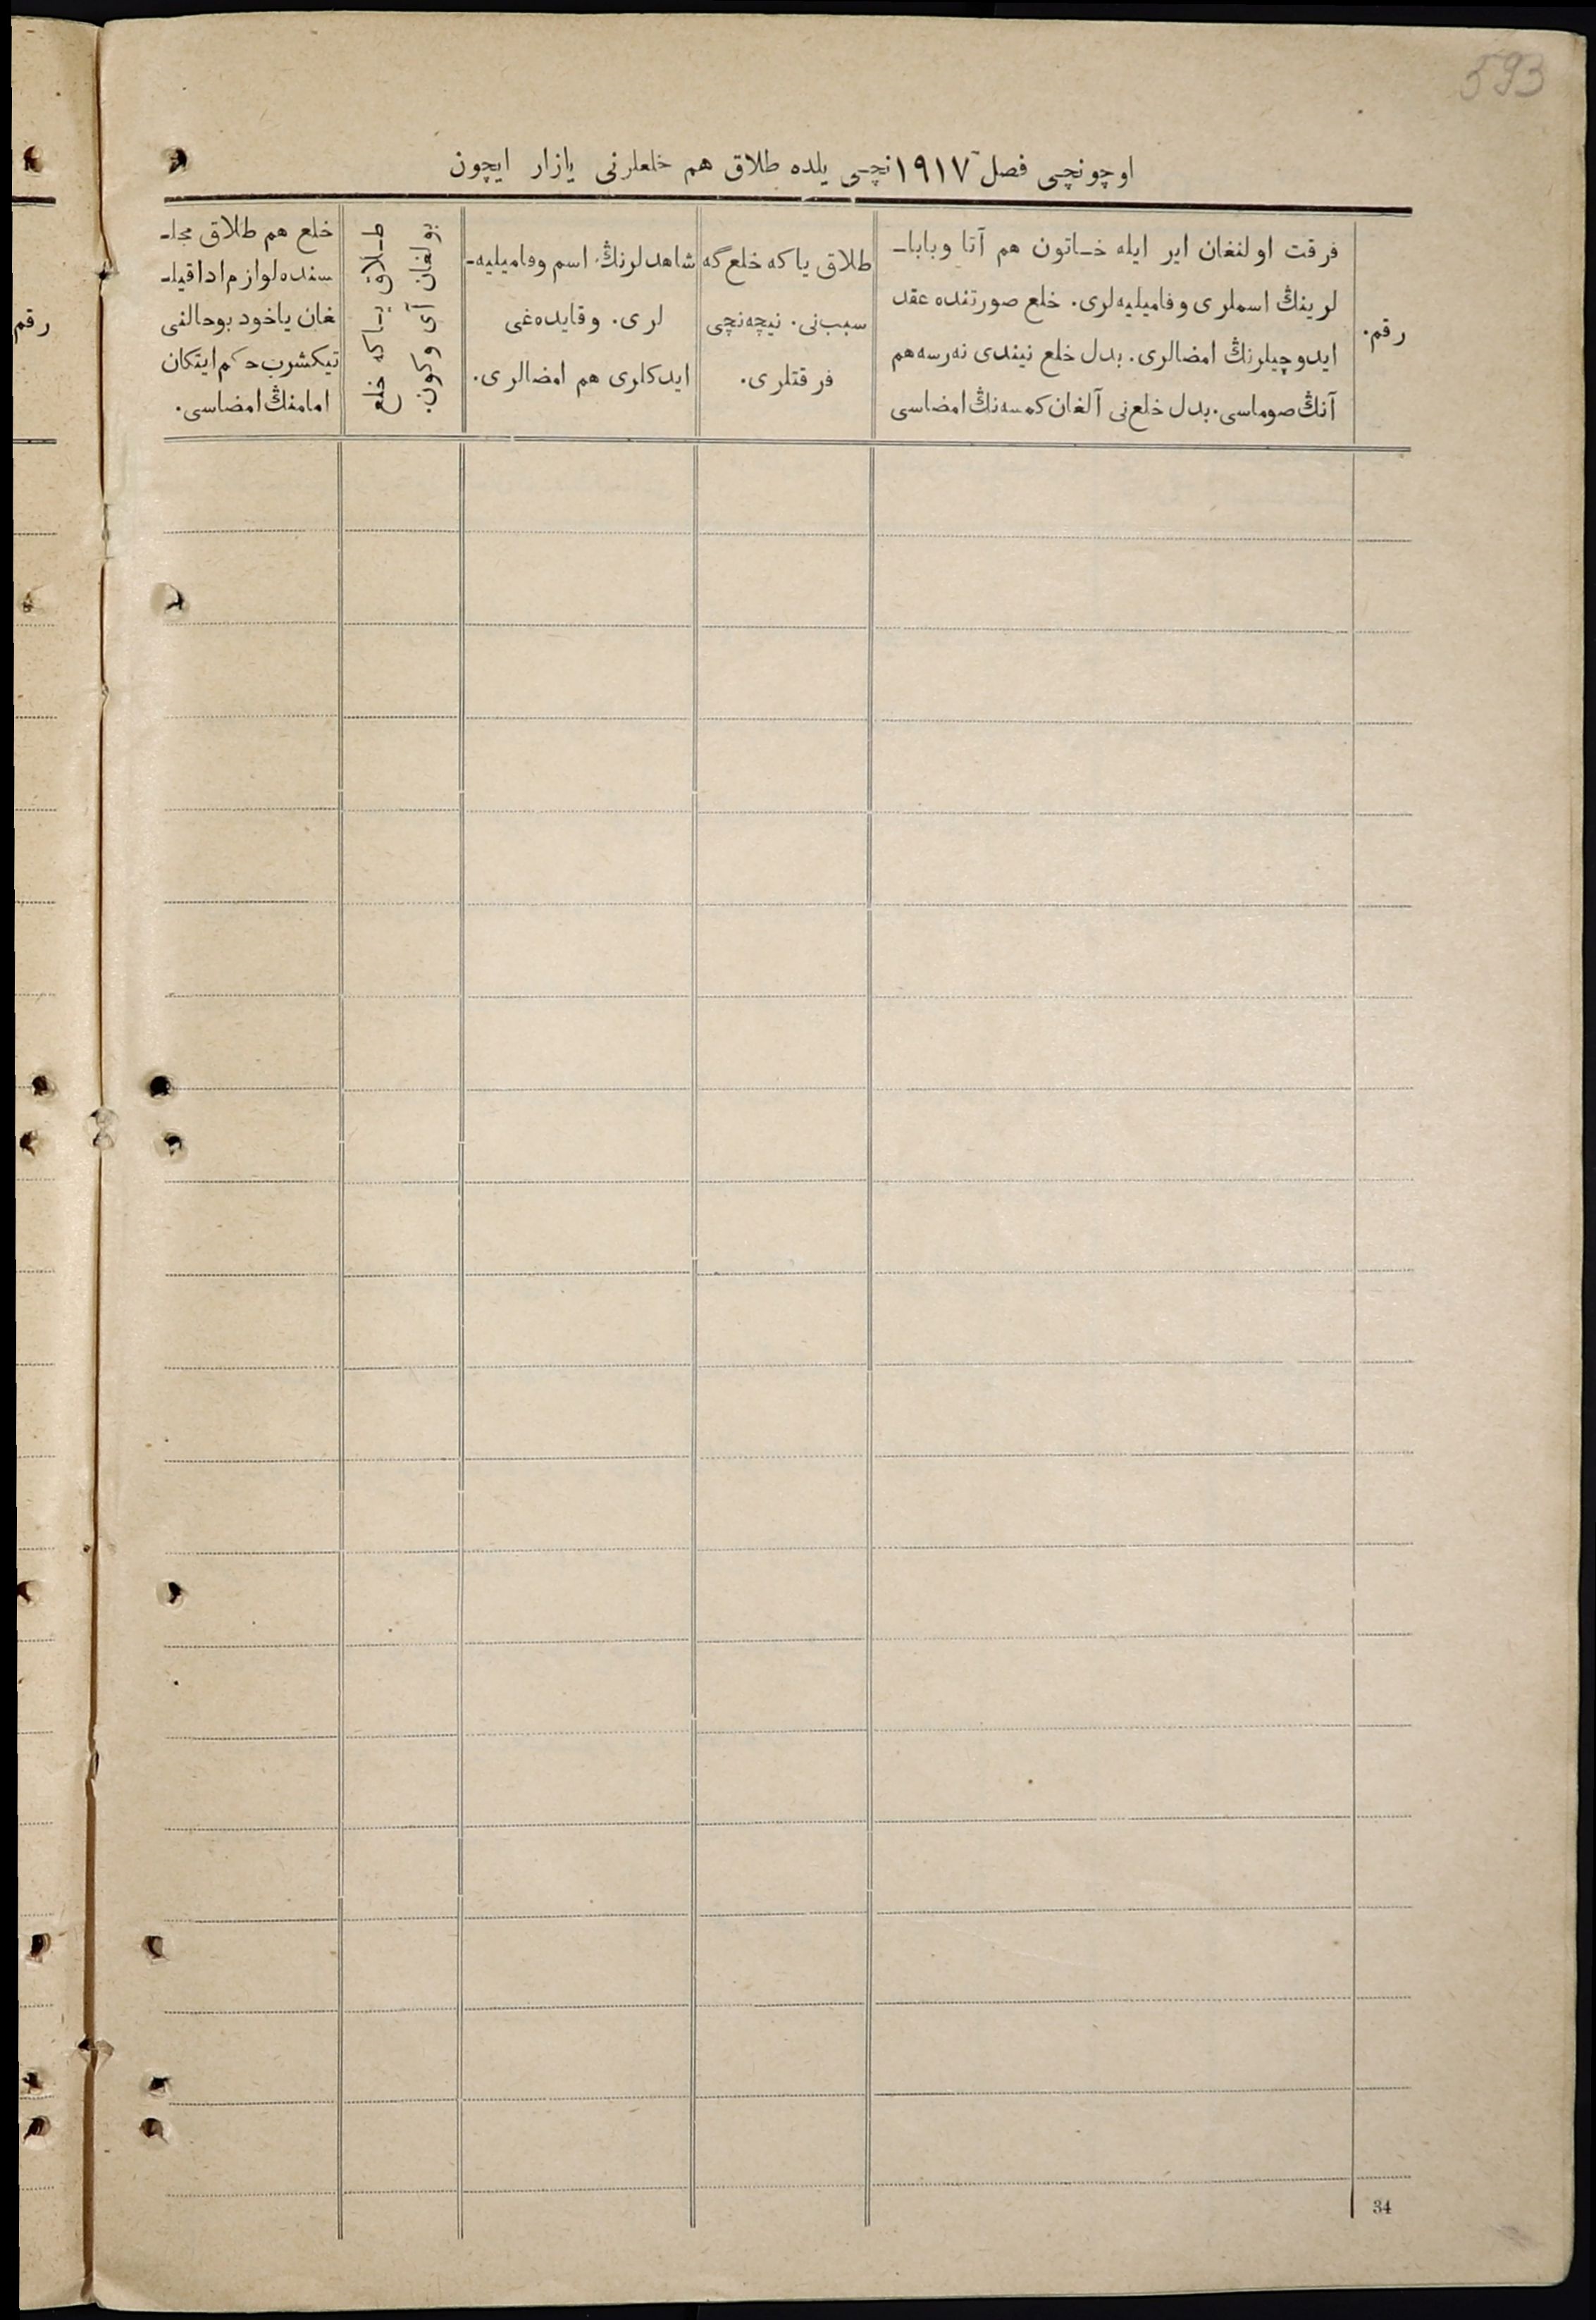 593
اوچونچی فصل ١٩١٧نچی یلده طلاق هم خلعلرنی یازار ایچون
رقم.
فرقت اولنغان ایر ایله خـاتون هم آتا وباباـ
لرینڭ اسملری وفامیلیه‌لری. خلع صورتنده عقد
ایدوچیلرنڭ امضالری. بدل خلع نیندی نەرسه‌هم
آنڭ صوماسی. بدل خلع‌نی آلغان کمسه‌نڭ امضاسی
طلاق یاکه خلع‌گه
سبب‌نی. نیچه‌نچی
فرقتلری.
شاهدلرنڭ اسم وفامیلیه‌ـ
لری. وقایده‌غی
ایدکلری هم امضالری.
بولغان آی وکون.
طـلاق یـاکه خلع
خلع هم طلاق مجلـ
سنده‌لوازم اداقیلـ
غان یاخود بوحالنی
تیکشرب حکم ایتکان
امامنڭ امضاسی.
رقم
34